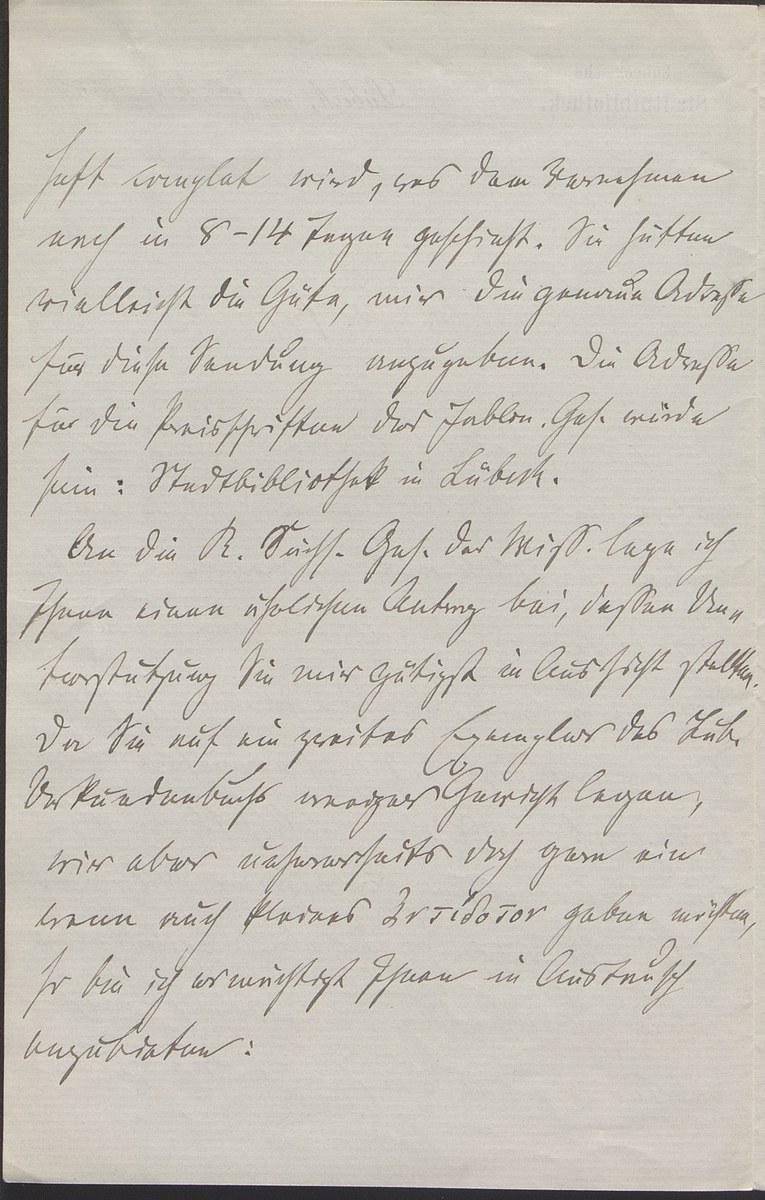 heft complet wird, was dem Vernehmen
nach in 8–14 Tagen geschieht. Sie hätten
vielleicht die Güte, mir die genaue Adresse
für diese Sendung anzugeben. Die Adresse
für die Preisschriften der Jablon. Ges. würde
sein: Stadtbibliothek in Lübeck.
An die K. Sächs. Ges. der Wiss. lege ich
Ihnen einen ähnlichen Antrag bei, dessen Un-
terstützung Sie mir gütigst in Aussicht stellten.
Da Sie auf ein zweites Exemplar des Lüb.
Urkundenbuchs weniger Gewicht legen,
wir aber unsererseits doch gern ein
wenn auch kleines ἀντίδοτον geben möchten,
so bin ich ermächtigt Ihnen in Austausch
anzubieten: